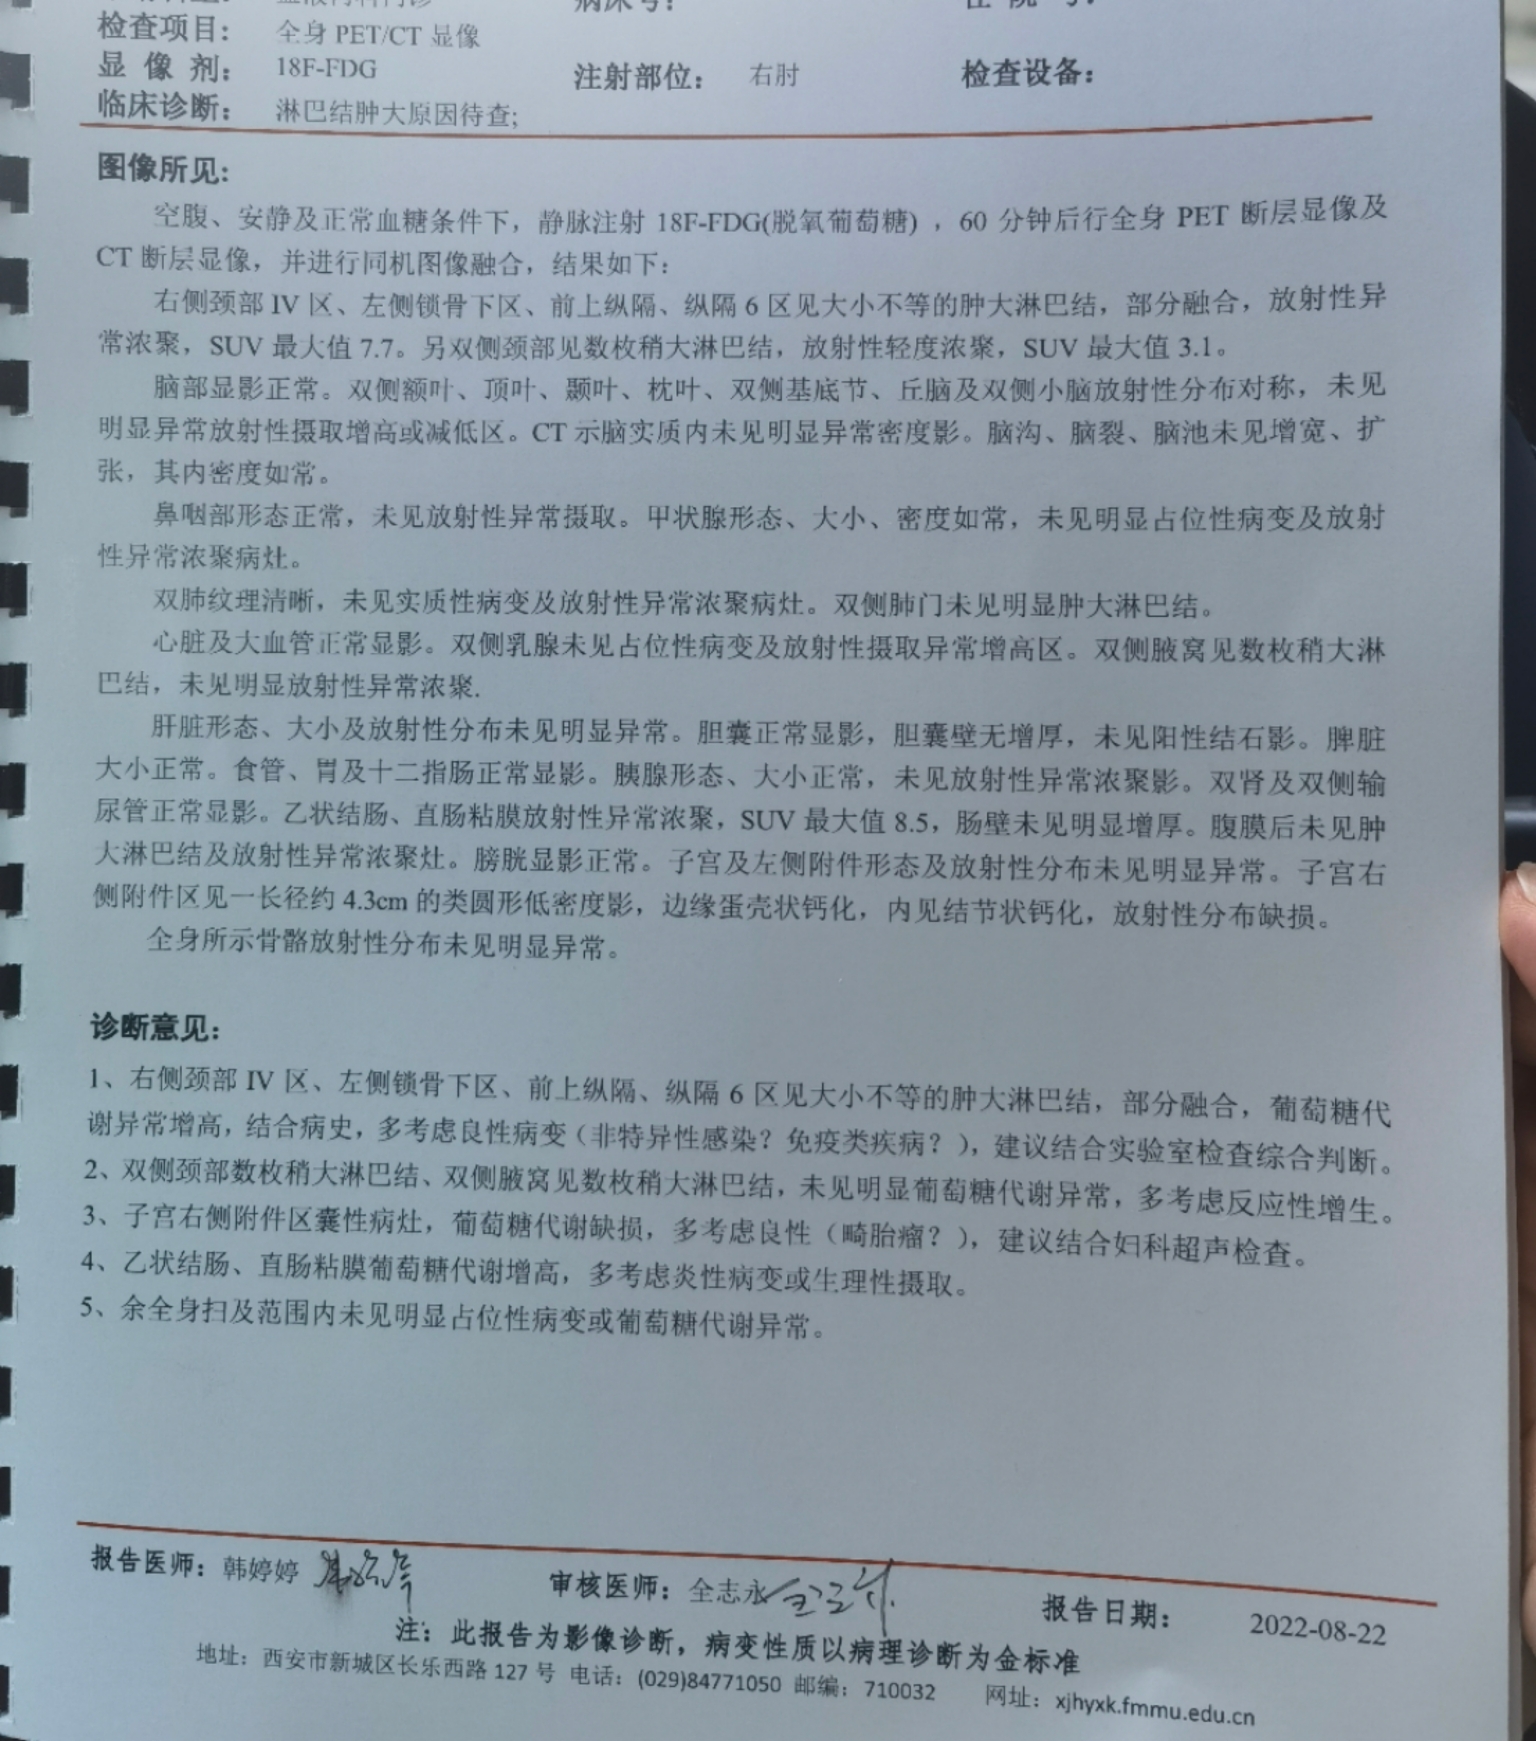 检查项目： 全身 PET/CT 显像
显 像 剂： 18F-FDG 注射部位： 右肘 检查设备：
临床诊断： 淋巴结肿大原因待查;
图像所见：
空腹、安静及正常血糖条件下，静脉注射 18F-FDG(脱氧葡萄糖) ，60 分钟后行全身 PET 断层显像及
CT 断层显像，并进行同机图像融合，结果如下：
右侧颈部 IV 区、左侧锁骨下区、前上纵隔、纵隔 6 区见大小不等的肿大淋巴结，部分融合，放射性异
常浓聚，SUV 最大值 7.7。另双侧颈部见数枚稍大淋巴结，放射性轻度浓聚，SUV 最大值 3.1。
脑部显影正常。双侧额叶、顶叶、颞叶、枕叶、双侧基底节、丘脑及双侧小脑放射性分布对称，未见
明显异常放射性摄取增高或减低区。CT 示脑实质内未见明显异常密度影。脑沟、脑裂、脑池未见增宽、扩
张，其内密度如常。
鼻咽部形态正常，未见放射性异常摄取。甲状腺形态、大小、密度如常，未见明显占位性病变及放射
性异常浓聚病灶。
双肺纹理清晰，未见实质性病变及放射性异常浓聚病灶。双侧肺门未见明显肿大淋巴结。
心脏及大血管正常显影。双侧乳腺未见占位性病变及放射性摄取异常增高区。双侧腋窝见数枚稍大淋
巴结，未见明显放射性异常浓聚.
肝脏形态、大小及放射性分布未见明显异常。胆囊正常显影，胆囊壁无增厚，未见阳性结石影。脾脏
大小正常。食管、胃及十二指肠正常显影。胰腺形态、大小正常，未见放射性异常浓聚影。双肾及双侧输
尿管正常显影。乙状结肠、直肠粘膜放射性异常浓聚，SUV 最大值 8.5，肠壁未见明显增厚。腹膜后未见肿
大淋巴结及放射性异常浓聚灶。膀胱显影正常。子宫及左侧附件形态及放射性分布未见明显异常。子宫右
侧附件区见一长径约 4.3cm 的类圆形低密度影，边缘蛋壳状钙化，内见结节状钙化，放射性分布缺损。
全身所示骨骼放射性分布未见明显异常。
诊断意见：
1、右侧颈部 IV 区、左侧锁骨下区、前上纵隔、纵隔 6 区见大小不等的肿大淋巴结，部分融合，葡萄糖代
谢异常增高，结合病史，多考虑良性病变（非特异性感染？免疫类疾病？），建议结合实验室检查综合判断。
2、双侧颈部数枚稍大淋巴结、双侧腋窝见数枚稍大淋巴结，未见明显葡萄糖代谢异常，多考虑反应性增生。
3、子宫右侧附件区囊性病灶，葡萄糖代谢缺损，多考虑良性（畸胎瘤？），建议结合妇科超声检查。
4、乙状结肠、直肠粘膜葡萄糖代谢增高，多考虑炎性病变或生理性摄取。
5、余全身扫及范围内未见明显占位性病变或葡萄糖代谢异常。
报告医师：韩婷婷 审核医师：全志永 报告日期： 2022-08-22
注：此报告为影像诊断，病变性质以病理诊断为金标准
地址：西安市新城区长乐西路 127 号 电话：(029)84771050 邮编：710032 网址：xjhyxk.fmmu.edu.cn